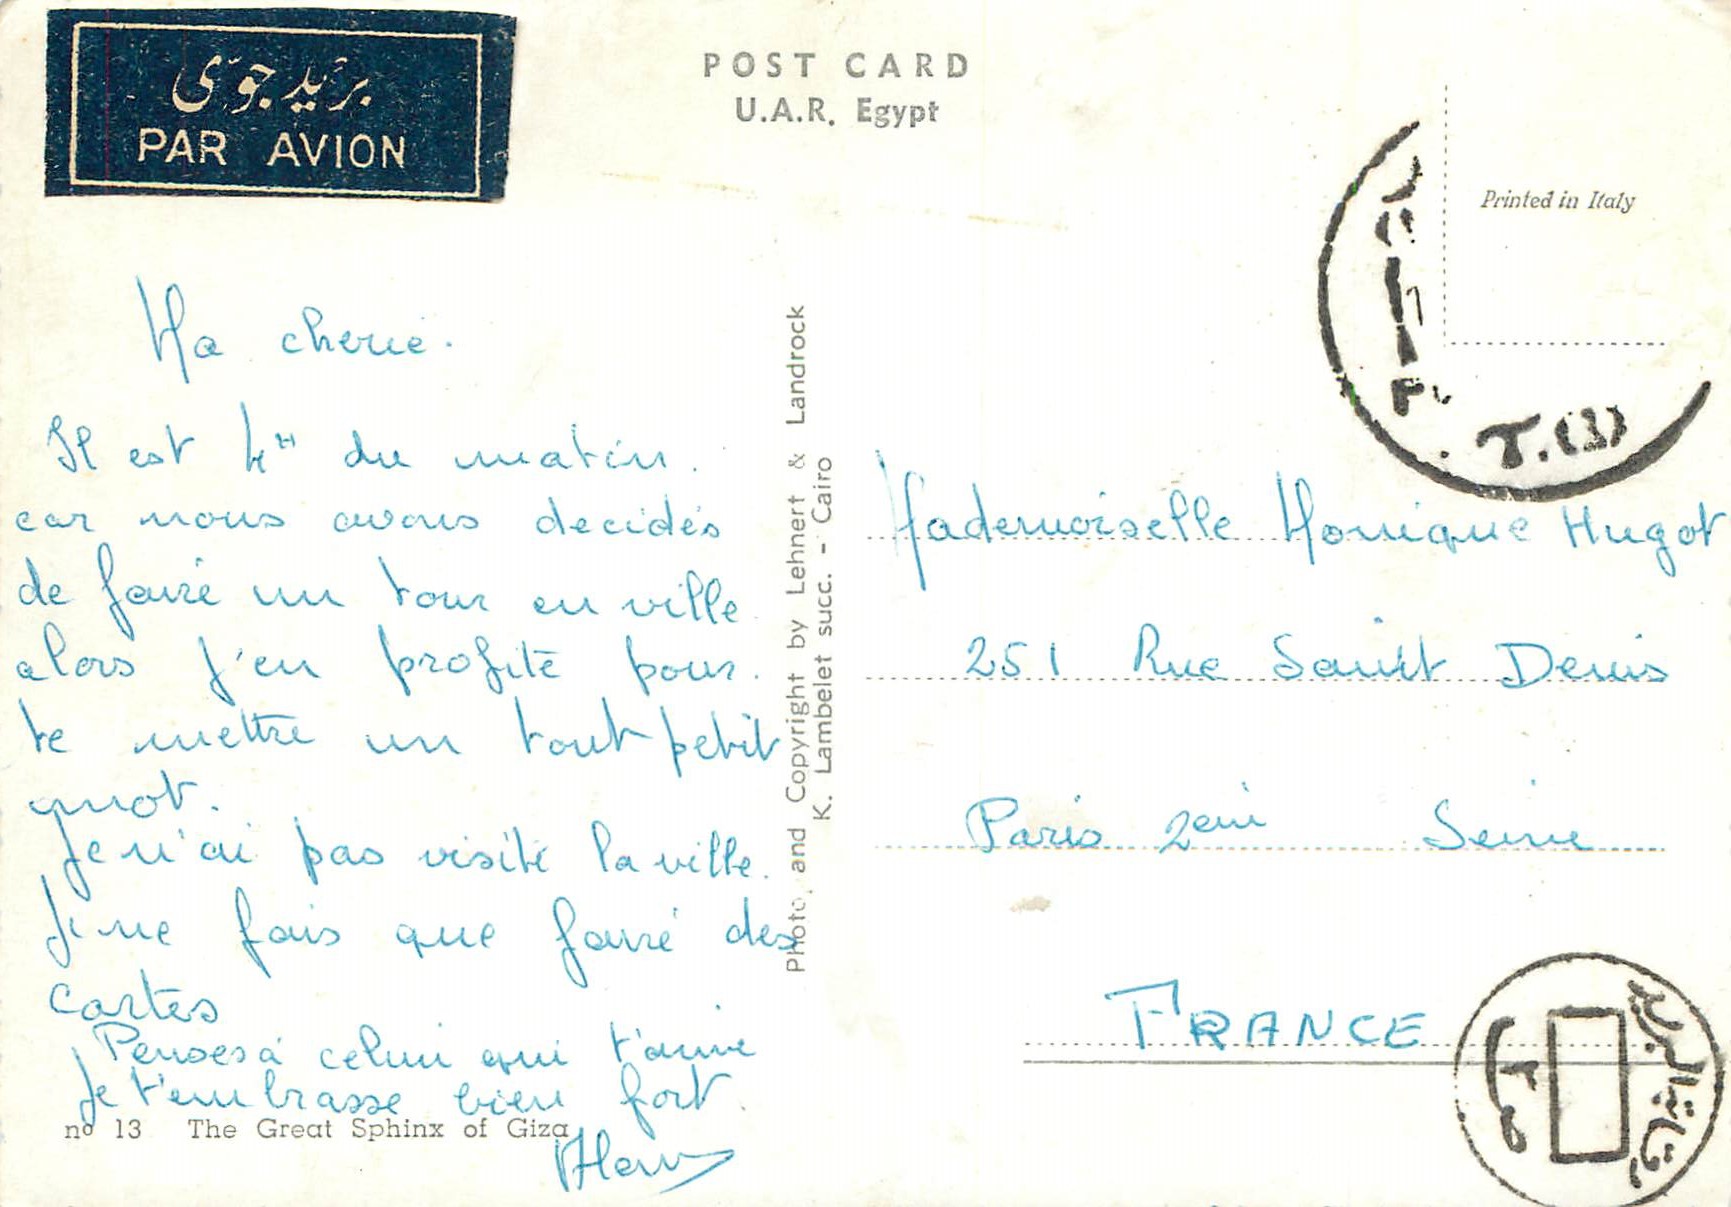 بريد جوّى
PAR AVION
POST CARD
U.A.R. Egypt
Printed in Italy
T.(1)
Ma cherie.
Il est 4H du matin.
car nous avons decidés
de fairé un tour en ville
alors j'en profite pour.
te mettre un tout petit
mot.
Je n'ai pas visité la ville.
Je ne fais que fairé des
cartes
Penses à celui qui t'aime
Je t'embrasse bien fort.
nº 13 The Great Sphinx of Giza
Photo, and Copyright by Lehnert & Landrock
K. Lambelet succ. - Cairo
Mademoiselle Monique Hugot
251 Rue Saint Denis
Paris 2emi Seine
FRANCE